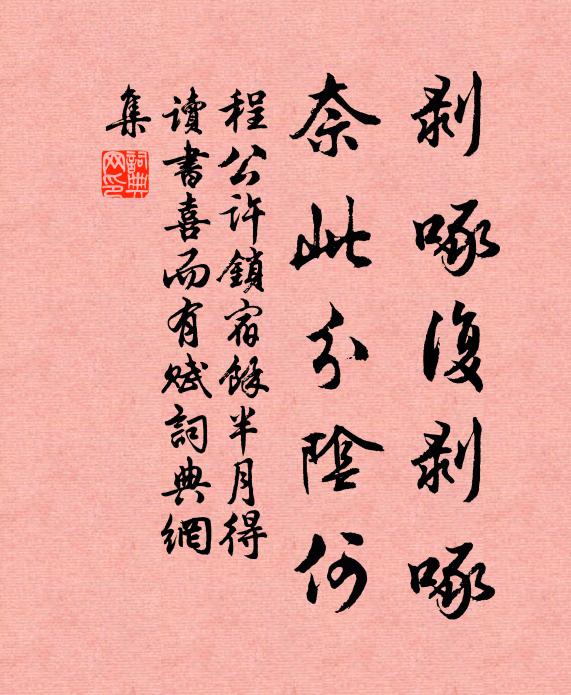 剝啄復剝啄
奈此分陰何
程公許鎖宿餘半月得
讀書喜而有賦詞典網
集
詞典網印